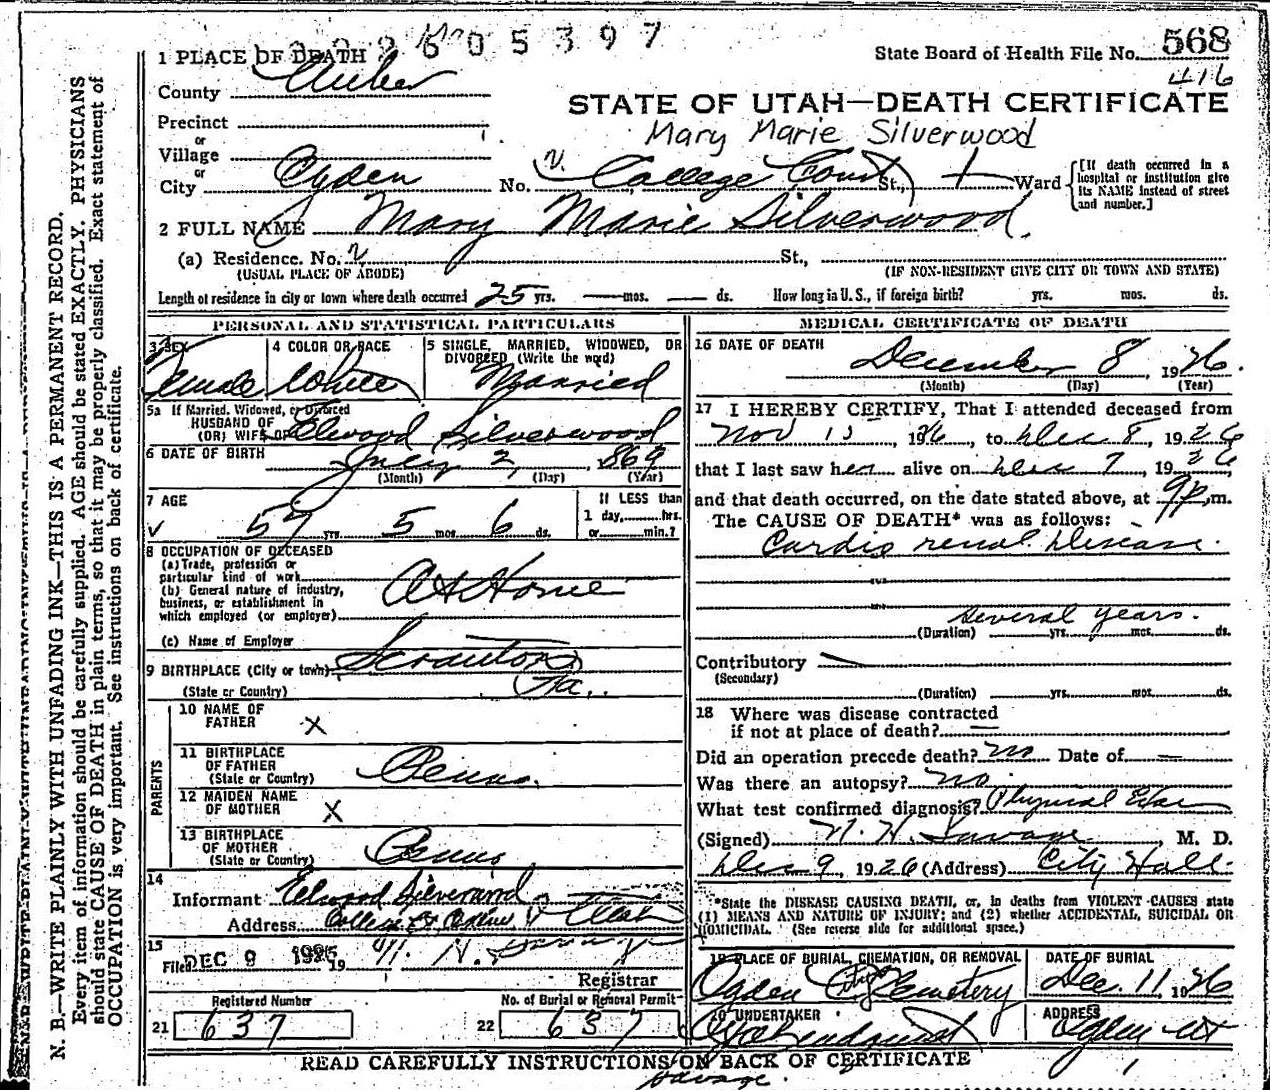 2605397
State Board of Health File No. 568
416
1 PLACE OF DEATH
County Weber
STATE OF UTAH—DEATH CERTIFICATE
Precinct
Mary Marie Silverwood
or
Village
or
City Ogden No. 2 College Court St., Ward
[If death occurred in a hospital or institution give its NAME instead of street and number.]
2 FULL NAME Mary Marie Silverwood.
(a) Residence. No. 2 St.,
(USUAL PLACE OF ABODE) (IF NON-RESIDENT GIVE CITY OR TOWN AND STATE)
Length of residence in city or town where death occurred 25 yrs. — mos. — ds. How long in U. S., if foreign birth? yrs. mos. ds.
PERSONAL AND STATISTICAL PARTICULARS
3 SEX 4 COLOR OR RACE 5 SINGLE, MARRIED, WIDOWED, OR DIVORCED (Write the word)
Female White Married
5a If Married, Widowed, or Divorced
HUSBAND OF
(OR) WIFE OF Elwood Silverwood
6 DATE OF BIRTH July 2, 1869
(Month) (Day) (Year)
7 AGE If LESS than
1 day, hrs.
57 yrs. 5 mos. 6 ds. or min.?
8 OCCUPATION OF DECEASED
(a) Trade, profession or
particular kind of work
(b) General nature of industry,
business, or establishment in
which employed (or employer)
At Home
(c) Name of Employer
9 BIRTHPLACE (City or town) Scranton
(State or Country) Pa.
PARENTS
10 NAME OF
FATHER X
11 BIRTHPLACE
OF FATHER
(State or Country) Penns.
12 MAIDEN NAME
OF MOTHER X
13 BIRTHPLACE
OF MOTHER
(State or Country) Penns
14
Informant Elwood Silverwood
Address College Ct Ogden Utah
15
Filed DEC 9 1926 19
Registrar
Registered Number No. of Burial or Removal Permit
21 637 22 637
MEDICAL CERTIFICATE OF DEATH
16 DATE OF DEATH
December 8, 1926.
(Month) (Day) (Year)
17 I HEREBY CERTIFY, That I attended deceased from
Nov 15, 1926, to Dec 8, 1926
that I last saw her alive on Dec 7, 1926
and that death occurred, on the date stated above, at 9 p.m.
The CAUSE OF DEATH* was as follows:
Cardio renal Disease.
several years.
(Duration) yrs. mos. ds.
Contributory
(Secondary)
(Duration) yrs. mos. ds.
18 Where was disease contracted
if not at place of death? —
Did an operation precede death? no Date of —
Was there an autopsy? no.
What test confirmed diagnosis? Physical Exam
(Signed) H. Savage M. D.
Dec 9, 1926 (Address) City Hall.
*State the DISEASE CAUSING DEATH, or, in deaths from VIOLENT CAUSES state
(1) MEANS AND NATURE OF INJURY; and (2) whether ACCIDENTAL, SUICIDAL OR
HOMICIDAL. (See reverse side for additional space.)
19 PLACE OF BURIAL, CREMATION, OR REMOVAL DATE OF BURIAL
Ogden City Cemetery Dec. 11, 1926
20 UNDERTAKER ADDRESS
Ogden Ut
READ CAREFULLY INSTRUCTIONS ON BACK OF CERTIFICATE
Savage.
N. B.—WRITE PLAINLY WITH UNFADING INK—THIS IS A PERMANENT RECORD.
Every item of information should be carefully supplied. AGE should be stated EXACTLY. PHYSICIANS
should state CAUSE OF DEATH in plain terms, so that it may be properly classified. Exact statement of
OCCUPATION is very important. See instructions on back of certificate.